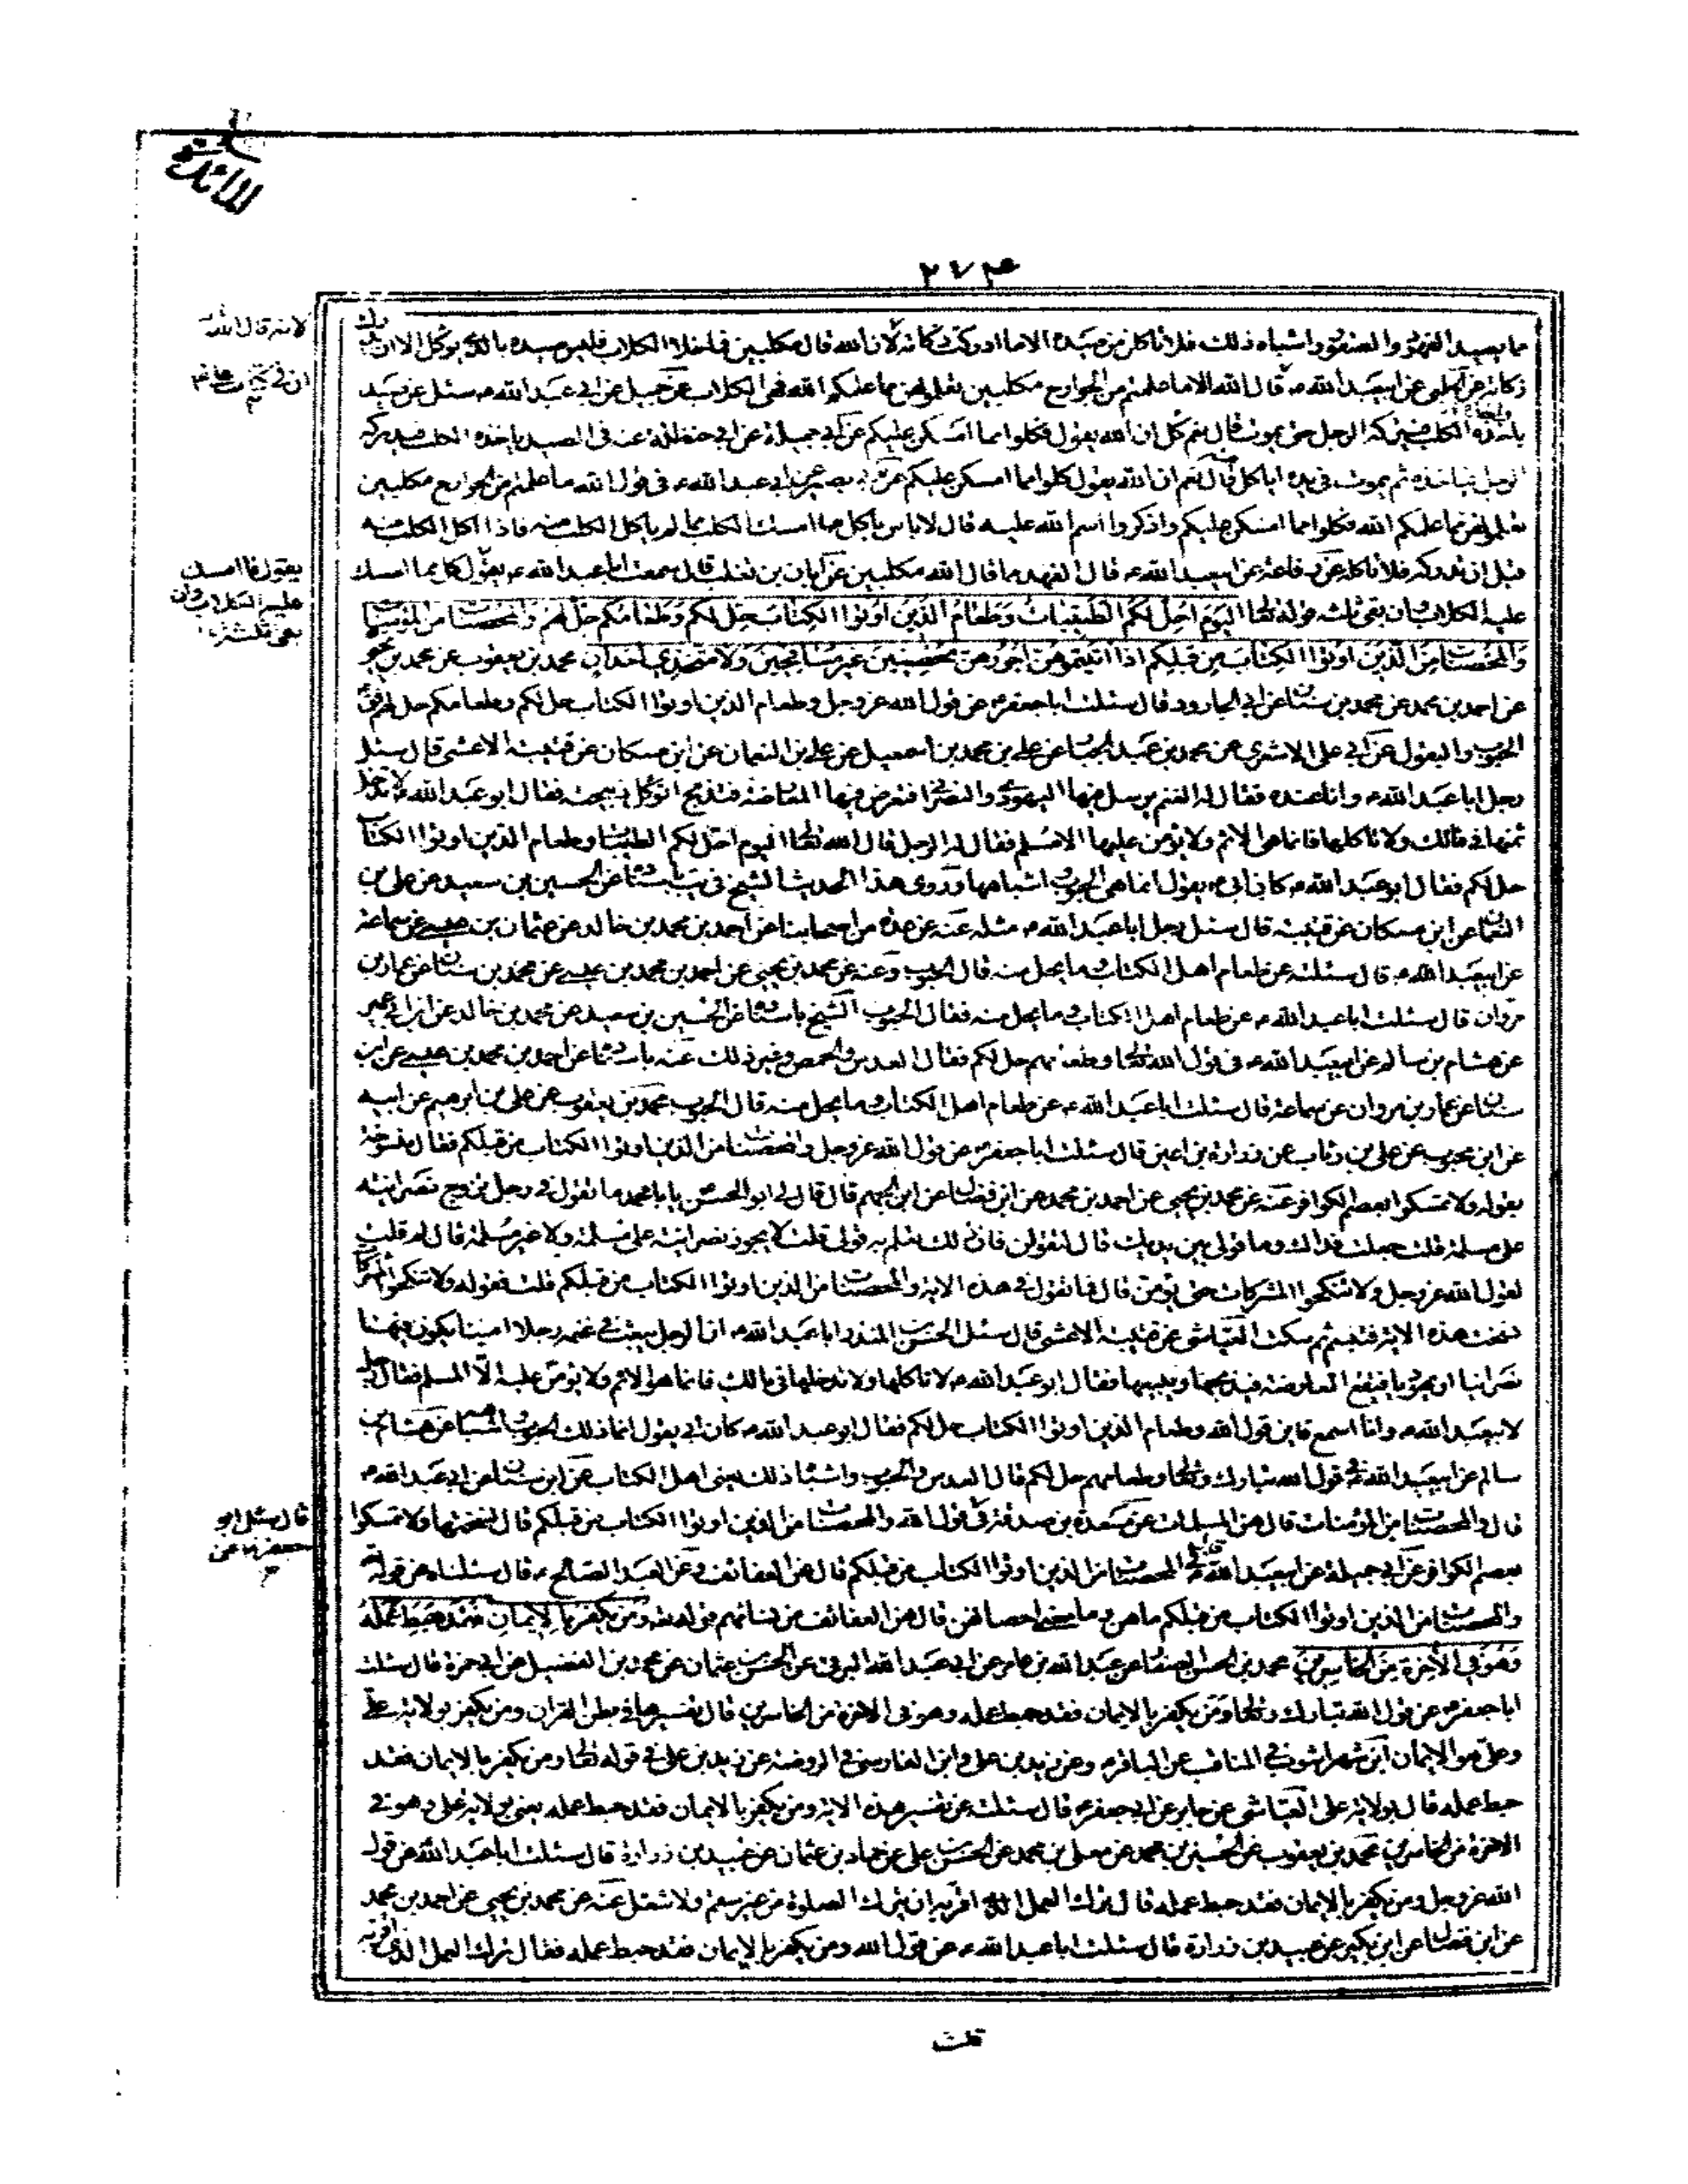 المائدة
٢٧٤
مما يصيد الفهود والصقور واشباه ذلك فلا تاكل من صيده الا ما ادركت ذكاته لان الله قال مكلبين فما خلا الكلاب فليس صيده بالذي يؤكل الا ان تدرك
ذكاته عن الحلبي عن ابيعبد الله ع قال الله الا ما علمتم من الجوارح مكلبين تعلمونهن مما علمكم الله فهي الكلاب عن جميل عن ابي عبد الله ع سئل عن صيد
الكلب الرجل حتى يموت قال نعم كل ان الله يقول فكلوا مما امسكن عليكم عن ابي جميلة عن ابي حنظلة عنه في الصيد ياخذه الكلب فيدركه
الرجل فياخذه ثم يموت في يده اياكل قال نعم ان الله يقول كلوا مما امسكن عليكم عن ابي بصير عن ابي عبد الله ع في قول الله ما علمتم من الجوارح مكلبين
تعلمونهن مما علمكم الله فكلوا مما امسكن عليكم واذكروا اسم الله عليه قال لا باس باكل ما امسك الكلب مما لم ياكل الكلب منه فاذا اكل الكلب منه
قبل ان تدركه فلا تاكله عن رفاعة عن ابيعبد الله ع قال الفهد مما قال الله مكلبين عن ابان بن تغلب قال سمعت ابا عبد الله ع يقول كل مما امسك
عليه الكلاب وان بقي ثلثه قوله تعالى اليوم احل لكم الطيبات وطعام الذين اوتوا الكتاب حل لكم وطعامكم حل لهم والمحصنات من المؤمنات
والمحصنات من الذين اوتوا الكتاب من قبلكم اذا اتيتموهن اجورهن محصنين غير مسافحين ولا متخذي اخدان محمد بن يعقوب عن محمد بن يحيى
عن احمد بن محمد عن محمد بن سنان عن ابي الجارود قال سئلت ابا جعفر ع عن قول الله عز وجل وطعام الذين اوتوا الكتاب حل لكم وطعامكم حل لهم فقال
الحبوب والبقول عن ابي علي الاشعري عن محمد بن عبد الجبار عن علي بن محمد بن اسمعيل عن علي بن النعمان عن ابن مسكان عن قتيبة الاعشى قال سئل
رجل ابا عبد الله ع وانا عنده فقال له الغنم يرسل فيها اليهودي والنصراني فتعرض فيها العارضة فتذبح اتوكل ذبيحته فقال ابو عبد الله ع لا تدخل
ثمنها في مالك ولا تاكلها فانما هي الاسم ولا يؤمن عليها الا مسلم فقال له الرجل قال الله تعالى اليوم احل لكم الطيبات وطعام الذين اوتوا الكتاب
حل لكم فقال ابو عبد الله ع كان ابي ع يقول انما هي الحبوب واشباهها وروى هذا الحديث الشيخ في يب باسناده عن الحسين بن سعيد عن علي بن
النعمان عن ابن مسكان عن قتيبة قال سئل رجل ابا عبد الله ع مثله عنه عن عدة من اصحابنا عن احمد بن محمد بن خالد عن عثمان بن عيسى عن سماعة
عن ابيعبد الله ع قال سئلته عن طعام اهل الكتاب ما يحل منه قال الحبوب وعنه عن محمد بن يحيى عن احمد بن محمد بن عيسى عن محمد بن سنان عن عمار بن
مروان قال سئلت ابا عبد الله ع عن طعام اهل الكتاب وما يحل منه فقال الحبوب الشيخ باسناده عن الحسين بن سعيد عن محمد بن خالد عن ابن ابي عمير
عن هشام بن سالم عن ابيعبد الله ع في قول الله تعالى وطعامهم حل لكم فقال العدس والحمص وغير ذلك عنه باسناده عن احمد بن محمد بن عيسى عن ابن
سنان عن عمار بن مروان عن سماعة قال سئلت ابا عبد الله ع عن طعام اهل الكتاب وما يحل منه قال الحبوب محمد بن يعقوب عن علي بن ابرهيم عن ابيه
عن ابن محبوب عن علي بن رئاب عن زرارة بن اعين قال سئلت ابا جعفر ع عن قول الله عز وجل والمحصنات من الذين اوتوا الكتاب من قبلكم فقال منسوخة
بقوله ولا تمسكوا بعصم الكوافر عنه عن محمد بن يحيى عن احمد بن محمد عن ابن فضال عن ابن الجهم قال قال لي ابو الحسن ع يا با محمد ما تقول في رجل تزوج نصرانية
على مسلمة قلت جعلت فداك وما قولي بين يديك قال لتقولن فان ذلك تعلم به قولي قلت لا يجوز نصرانية على مسلمة ولا غير مسلمة قال لم قلت
لقول الله عز وجل ولا تنكحوا المشركات حتى يؤمن قال فما تقول في هذه الاية والمحصنات من الذين اوتوا الكتاب من قبلكم قلت فقوله ولا تنكحوا المشركات
نسخت هذه الاية فتبسم ثم سكت العياشي عن قتيبة الاعشى قال سئل الحسن بن المنذر ابا عبد الله ع ان الرجل يبعث في غنمه رجلا امينا يكون فيها
نصرانيا او يهوديا فتقع العارضة فيذبحها ويبيعها فقال ابو عبد الله ع لا تاكلها ولا تدخلها في مالك فانما هو الاسم ولا يؤمن عليه الا المسلم فقال رجل
لابيعبد الله ع وانا اسمع فاين قول الله وطعام الذين اوتوا الكتاب حل لكم فقال ابو عبد الله ع كان ابي يقول انما ذلك الحبوب واشباهها عن هشام بن
سالم عن ابيعبد الله ع في قول الله تبارك وتعالى وطعامهم حل لكم قال العدس والحبوب واشباه ذلك يعني اهل الكتاب عن ابن سنان عن ابي عبد الله ع
قال والمحصنات من المؤمنات قال هن المسلمات عن مسعدة بن صدقة في قول الله والمحصنات من الذين اوتوا الكتاب من قبلكم قال نسختها ولا تمسكوا
بعصم الكوافر عن ابي جميلة عن ابيعبد الله ع في المحصنات من الذين اوتوا الكتاب من قبلكم قال هن العفائف وعن العبد الصالح ع قال سئلناه عن قوله
والمحصنات من الذين اوتوا الكتاب من قبلكم ما هن وما معنى احصانهن قال هن العفائف من نسائهم قوله تعالى ومن يكفر بالايمان فقد حبط عمله
وهو في الاخرة من الخاسرين محمد بن الحسن الصفار عن عبد الله بن عامر عن ابي عبد الله البرقي عن الحسن بن عثمان عن محمد بن الفضيل عن ابي حمزة قال سئلت
ابا جعفر ع عن قول الله تبارك وتعالى ومن يكفر بالايمان فقد حبط عمله وهو في الاخرة من الخاسرين قال تفسيرها في بطن القران ومن يكفر بولاية علي
وعلي هو الايمان ابن شهراشوب في المناقب عن الباقر ع وعن زيد بن علي وابن الفارسي في الروضة عن زيد بن علي في قوله تعالى ومن يكفر بالايمان فقد
حبط عمله قال بولاية علي العياشي عن جابر عن ابي جعفر ع قال سئلته عن تفسير هذه الاية ومن يكفر بالايمان فقد حبط عمله يعني بولاية علي وهو في
الاخرة من الخاسرين محمد بن يعقوب عن الحسين بن محمد عن معلى بن محمد عن الحسن بن علي عن حماد بن عثمان عن عبيد بن زرارة قال سئلت ابا عبد الله ع عن قول
الله عز وجل ومن يكفر بالايمان فقد حبط عمله قال ترك العمل الذي اقر به ان يترك الصلوة من غير سقم ولا شغل عنه عن محمد بن يحيى عن احمد بن محمد
عن ابن فضال عن ابن بكير عن عبيد بن زرارة قال سئلت ابا عبد الله ع عن قول الله ومن يكفر بالايمان فقد حبط عمله فقال ترك العمل الذي اقر به
لانه قال الله
ان في كتاب علي ع
يقول كل ما امسك
عليه الكلاب وان
بقي ثلثه
قال سئل ابو
جعفر ع عن
قلت